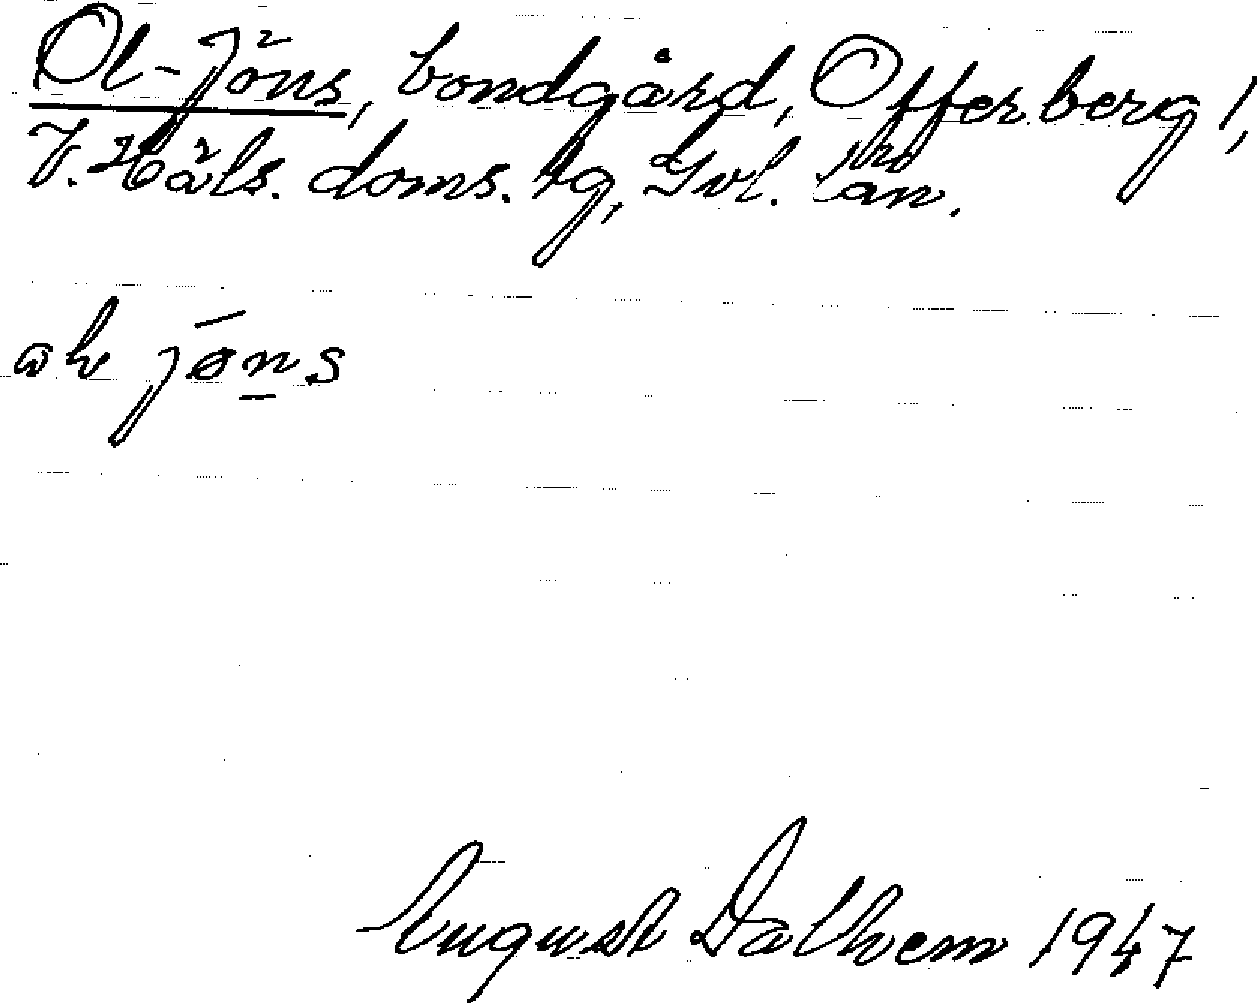 Ol-Jöns, bondgård, Offerberg 1,
V. Häls. doms. tg, Gvl. län.
jöns
August Dalhem 1947